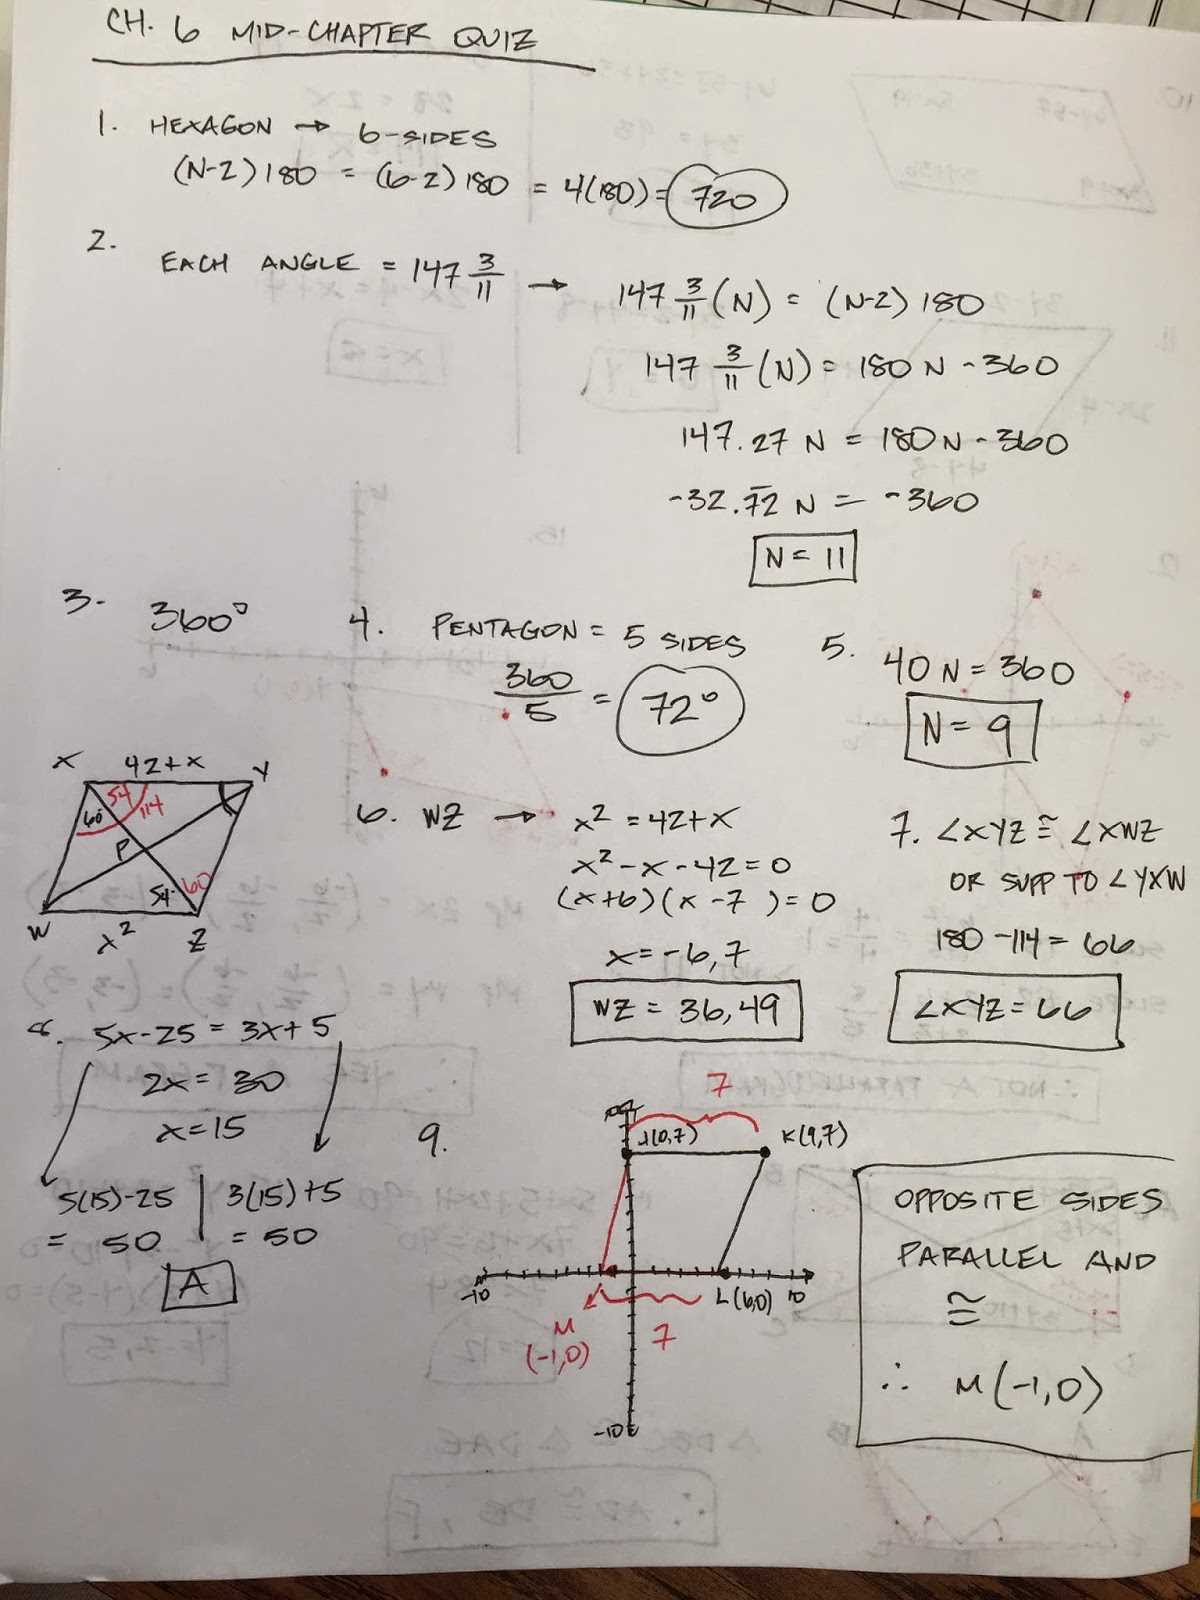 CH. 6 MID-CHAPTER QUIZ
1. HEXAGON → 6-SIDES
(N-2)180 = (6-2)180 = 4(180) = 720
2. EACH ANGLE = 147 3/11 → 147 3/11 (N) = (N-2) 180
147 3/11 (N) = 180 N - 360
147.27 N = 180N - 360
-32.72 N = -360
N = 11
3. 360°
4. PENTAGON = 5 SIDES
360/5 = 72°
5. 40N = 360
N = 9
X 42+x Y
60 54 114
P
54 60
W x² Z
6. WZ → x² = 42+x
x² - x - 42 = 0
(x+6)(x-7) = 0
x = -6, 7
WZ = 36, 49
7. ∠XYZ ≅ ∠XWZ
OR SUPP TO ∠YXW
180 - 114 = 66
∠XYZ = 66
8. 5x-25 = 3x+5
2x = 30
x = 15
5(15)-25 | 3(15)+5
= 50 | = 50
A
9.
7
J(0,7) K(9,7)
-10 L(6,0) 10
M 7
(-1,0)
-10
OPPOSITE SIDES
PARALLEL AND
≅
∴ M(-1,0)